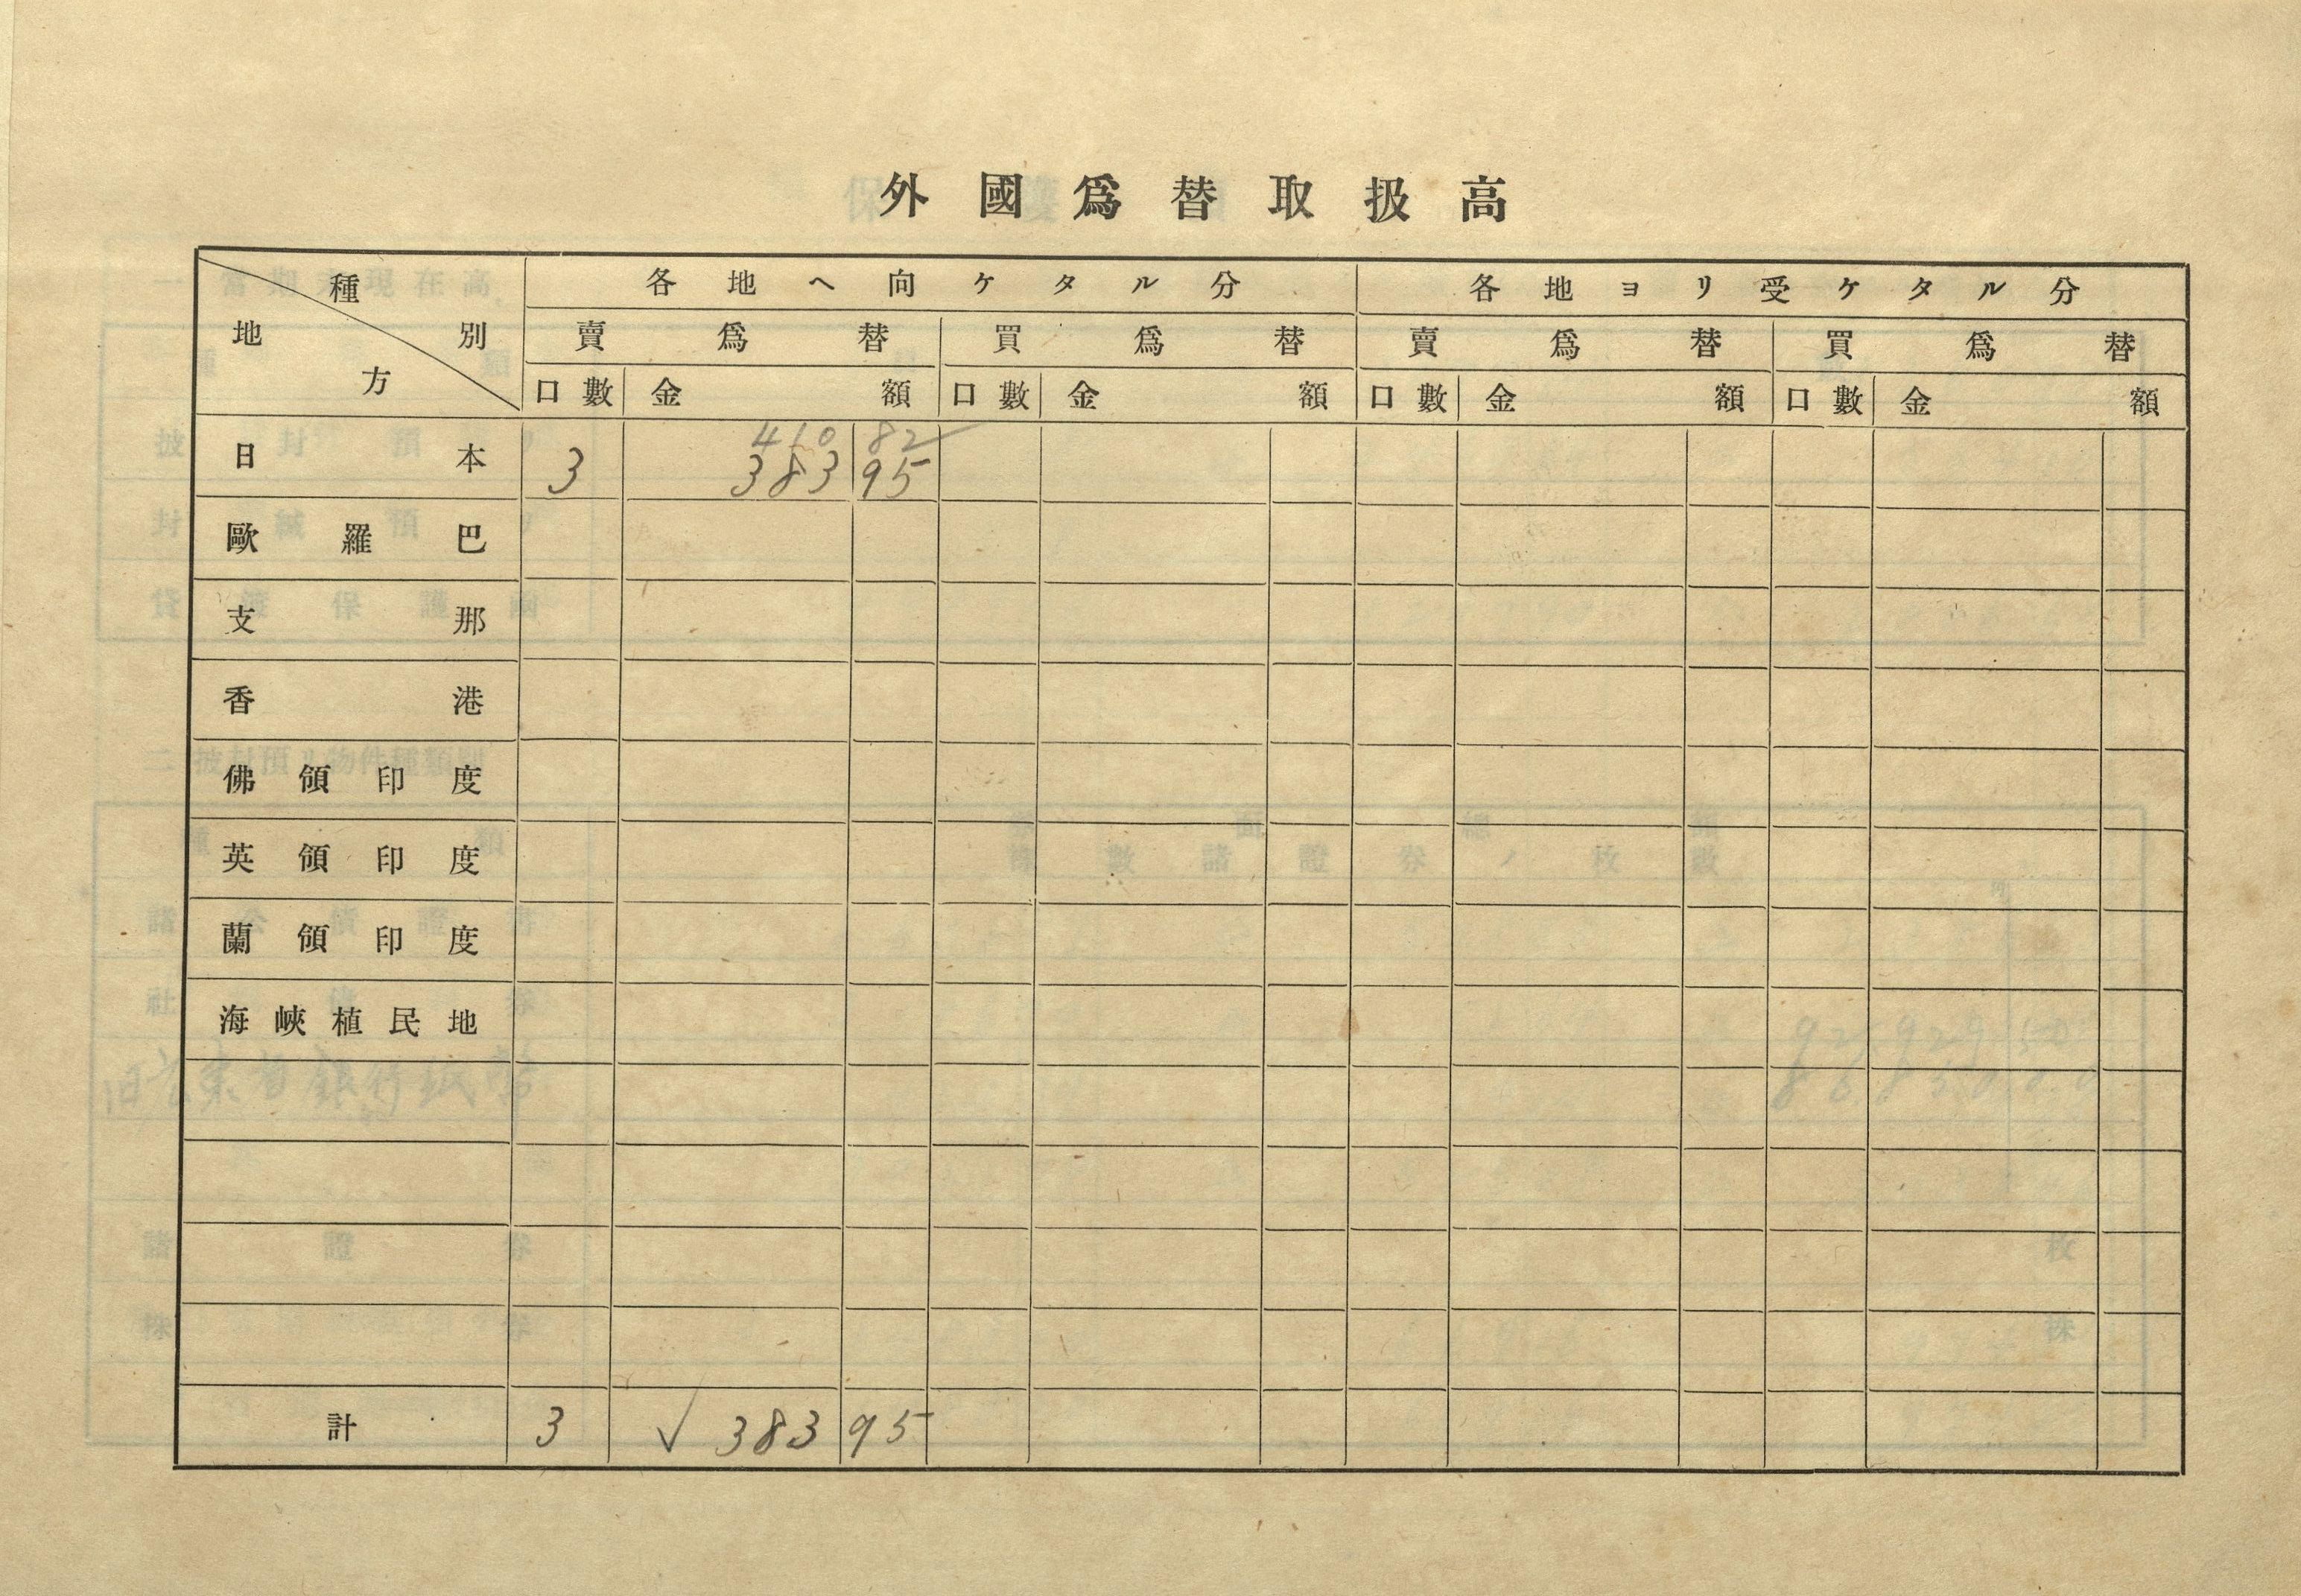 外國爲替取扱高
種別 地方 各地ヘ向ケタル分 各地ヨリ受ケタル分
賣爲替 買爲替 賣爲替 買爲替
口數 金額 口數 金額 口數 金額 口數 金額
410 82
日本 3 383 95
歐羅巴
支那
香港
佛領印度
英領印度
蘭領印度
海峽植民地
計 3 √ 383 95